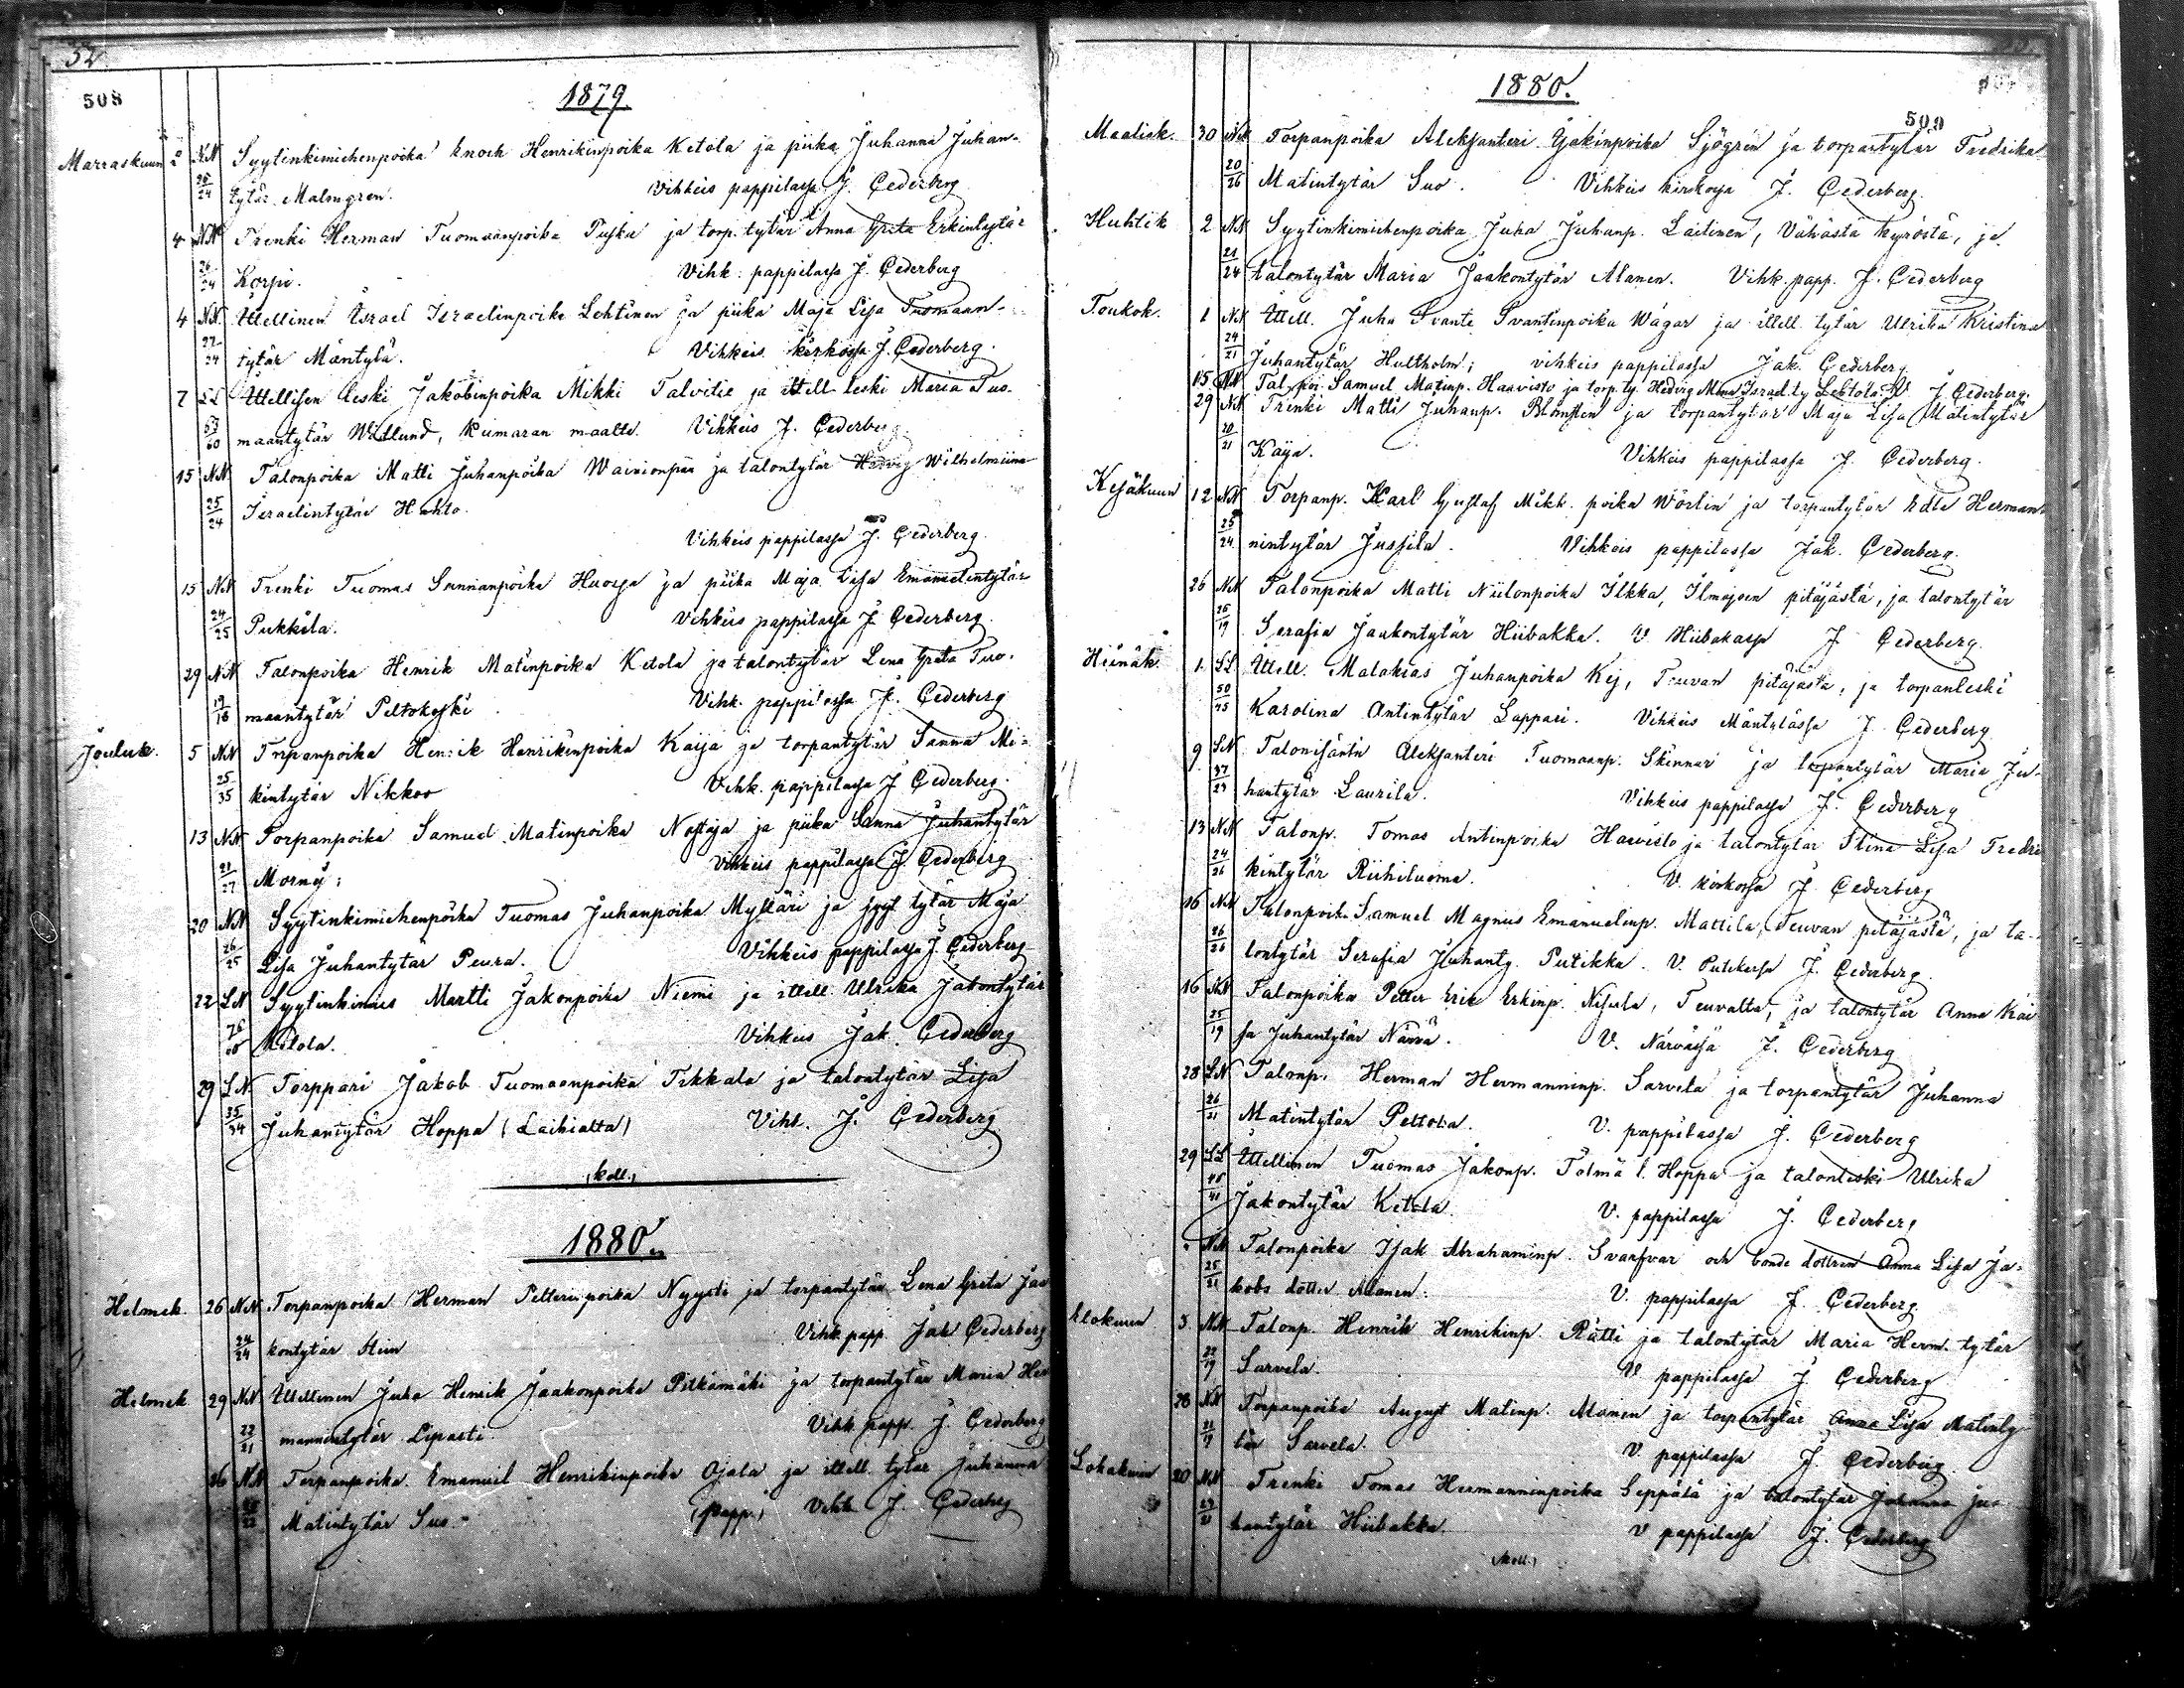 52
508
1879
Marraskuun 2 NN Syytinkimiehenpoika Enoch Henrikinpoika Ketola ja piika Juhanna Juhan-
25/24 tytär Malmgren. Vihkeis pappilassa J. Cederberg
4 NN Trenki Herman Tuomaanpoika Puska ja torp. tytär Anna Greta Erkintytär
26/24 Korpi. Vihk. pappilassa J. Cederberg
4 NN Ittellinen Israel Israelinpoika Lehtinen ja piika Maja Lisa Tuomaan-
22/24 tytär Mäntylä. Vihkeis kirkossa J. Cederberg.
7 LL Ittellisen leski Jakobinpoika Mikki Talvitie ja ittell leski Maria Tuo-
53/60 maantytär Widlund, kumaran maalta. Vihkeis J. Cederberg
15 NN Talonpoika Matti Juhanpoika Wainionpää ja talontytär Hedvig Wilhelmiina
25/24 Israelintytär Huhto.
Vihkeis pappilassa J. Cederberg.
15 NN Trenki Tuomas Sannanpoika Huosa ja piika Maja Lisa Emanuelintytär
24/25 Pukkila. Vihkeis pappilassa J. Cederberg.
29 NN Talonpoika Henrik Matinpoika Ketola ja talontytär Lena Greta Tuo-
19/18 maantytär Peltokoski Vihk. pappilassa J. Cederberg
Jouluk. 5 NN Torpanpoika Henrik Henrikinpoika Kaija ja torpantytär Sanna Mi-
25/35 kintytär Nikkoo Vihk. pappilassa J Cederberg.
13 NN Torpanpoika Samuel Matinpoika Nostaja ja piika Sanna Juhantytär
21/27 Morney; Vihkeis pappilassa J. Cederberg
20 NN Syytinkimiehenpoika Tuomas Juhanpoika Mylläri ja syyt tytär Maja
26/25 Lisa Juhantytär Peura. Vihkeis pappilassa J. Cederberg
22 LN Syytinkimies Martti Jakonpoika Niemi ja ittell. Ulrika Jakontytär
Vihkeis Jak. Cederberg
29 LN Torppari Jakob Tuomaanpoika Tikkala ja talontytär Lisa
35/34 Juhantytär Hoppa (Laihialta) Vihk. J. Cederberg
(koll.)
1880.
Helmek. 26 NN Torpanpoika Herman Petterinpoika Nyysti ja torpantytär Lena Greta Jaa
24/24 kontytär Hiin Vihk papp. Jak Cederberg
Helmek 29 NN Ittellinen Juha Henrik Jaakonpoika Pitkämäki ja torpantytär Maria Her
22/21 mannintytär Lipasti Vihk papp. J. Cederberg
26 NN Torpanpoika Emanuel Henrikinpoika Ojala ja ittell. tytär Juhanna
Matintytär Suo. (papp.) Vihk J. Cederberg
1880.
509
Maalisk. 30 NN Torpanpoika Aleksanteri Jaakinpoika Sjögren ja torpantytär Fredrika
20/26 Matintytär Suo. Vihkeis kirkossa J. Cederberg.
Huhtik 2 NN Syytinkimiehenpoika Juha Juhanp. Laitinen, Vähästä kyröstä, ja
21/24 talontytär Maria Jaakontytär Alanen. Vihk. papp. J. Cederberg
Toukok. 1 NN Ittell. Juha Svante Svantinpoika Wägar ja ittell tytär Ulrika Kristina
24/21 Juhantytär Hultholm; vihkeis pappilassa Jak. Cederberg.
15 NN Tal. poi. Samuel Matinp. Haavisto ja torp. ty. Hedvig Israel. ty Lehtola V. J Cederberg.
29 NN Trenki Matti Juhanp. Blomsten ja torpantytär Maja Lisa Matintytär
20/21 Kaya. Vihkeis pappilassa J. Cederberg.
Kesäkuun 12 NN Torpanp. Karl Gustaf Mikk. poika Wörlin ja torpantytär Edla Herman
25/24 nintytär Jussila. Vihkeis pappilassa Jak. Cederberg.
26 NN Talonpoika Matti Niilonpoika Ilkka, Ilmajoen pitäjästä, ja talontytär
26/19 Serafia Jaakontytär Hiibakka. V. Hiibakassa J. Cederberg.
Heinäk. 1. LL Ittell. Malakias Juhanpoika Kej, Teuvan pitäjästä, ja torpanleski
50/45 Karolina Antintytär Lappari. Vihkeis Mäntylässä J. Cederberg
9 LN Talonisäntä Aleksanteri Tuomaanp. Skinnar ja torpantytär Maria Ju-
37/23 hantytär Laurila. Vihkeis pappilassa J. Cederberg
13 NN Talonp. Tomas Antinpoika Hawisto ja talontytär Stina Lisa Fredri
24/26 kintytär Riihiluoma. V. kirkossa J Cederberg
16 NN Talonpoika Samuel Magnus Emanuelinp. Mattila, Teuvan pitäjästä, ja ta-
26/26 lontytär Serafia Juhantg. Putikka. V. Putikassa J. Cederberg
16 NN Talonpoika Petter Erik Erkinp. Nisula, Teuvalta, ja talontytär Anna Kai
25/19 sa Juhantytär Närvä. V. Närvässä J. Cederberg
28 LN Talonp. Herman Hermanninp. Sarvela ja torpantytär Juhanna
26/21 Matintytär Peltola. V. pappilassa J. Cederberg
29 LL Ittellinen Tuomas Jakonp. Tolmä l. Hoppa ja talonleski Ulrika
45/41 Jakontytär Ketola. V. pappilassa J. Cederberg
" NN Talonpoika Isak Abrahaminp. Svarfvar och bonde dottren Anna Lisa Ja-
25/21 kobs dotter Alanen. V. pappilassa J. Cederberg.
Elokuun 3 NN Talonp. Henrik Henrikinp. Rätti ja talontytär Maria Herm. tytär
22/19 Sarvela. V. pappilassa J. Cederberg
28 NN Torpanpoika August Matinp. Alanen ja torpantytär Anna Lisa Matinty
tär Sarvela. V. pappilassa J. Cederberg.
Lokakuun 20 NN Trenki Tomas Hermanninpoika Seppälä ja talontytär Johanna Ju-
hantytär Hiibakka. V pappilassa J. Cederberg
(koll.)